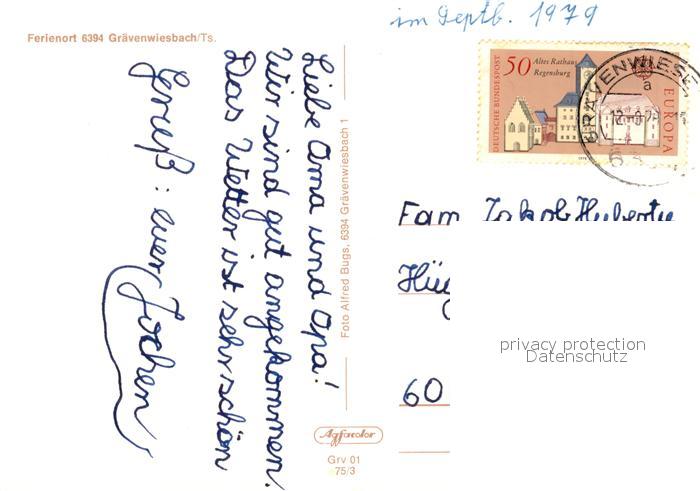 im Septb. 1979
Ferienort 6394 Grävenwiesbach/Ts.
Liebe Oma und Opa!
Wir sind gut angekommen.
Das Wetter ist sehr schön
Gruß: euer Jochen
Foto Alfred Bugs, 6394 Grävenwiesbach 1
Agfacolor
Grv 01
75/3
DEUTSCHE BUNDESPOST
50
Altes Rathaus
Regensburg
EUROPA
Fam Jakob
60
privacy protection
Datenschutz